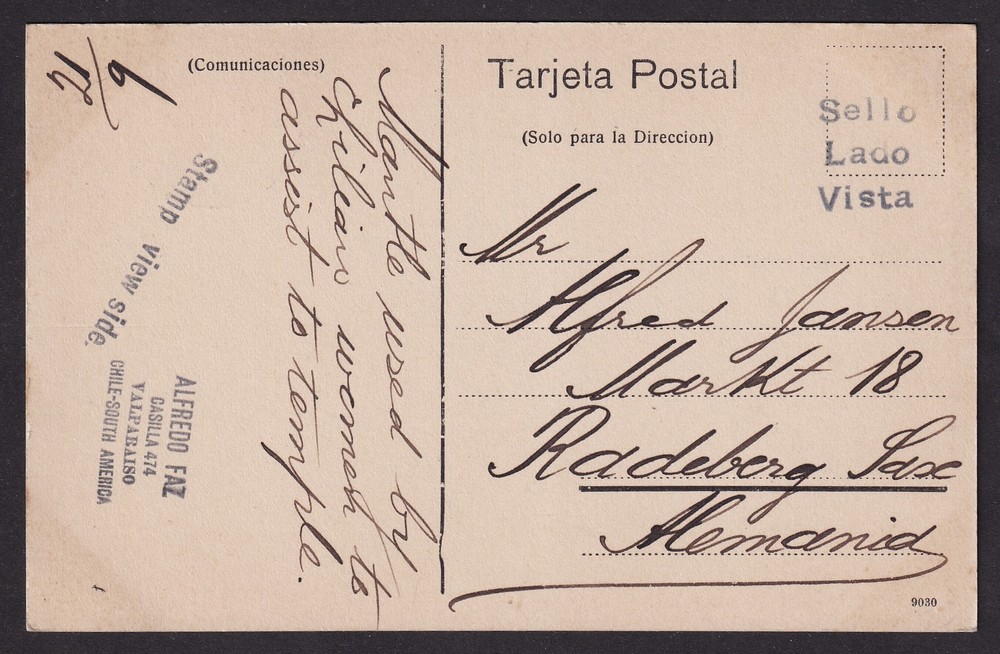 (Comunicaciones)
Mantle used by
chilean women to
assist to temple.
Stamp view side.
ALFREDO FAZ
CASILLA 474
VALPARAISO
CHILE-SOUTH AMERICA
Tarjeta Postal
(Solo para la Direccion)
Sello
Lado
Vista
Mr
Alfred Jansen
Markt 18
Radeberg Saxe
Alemania
9030